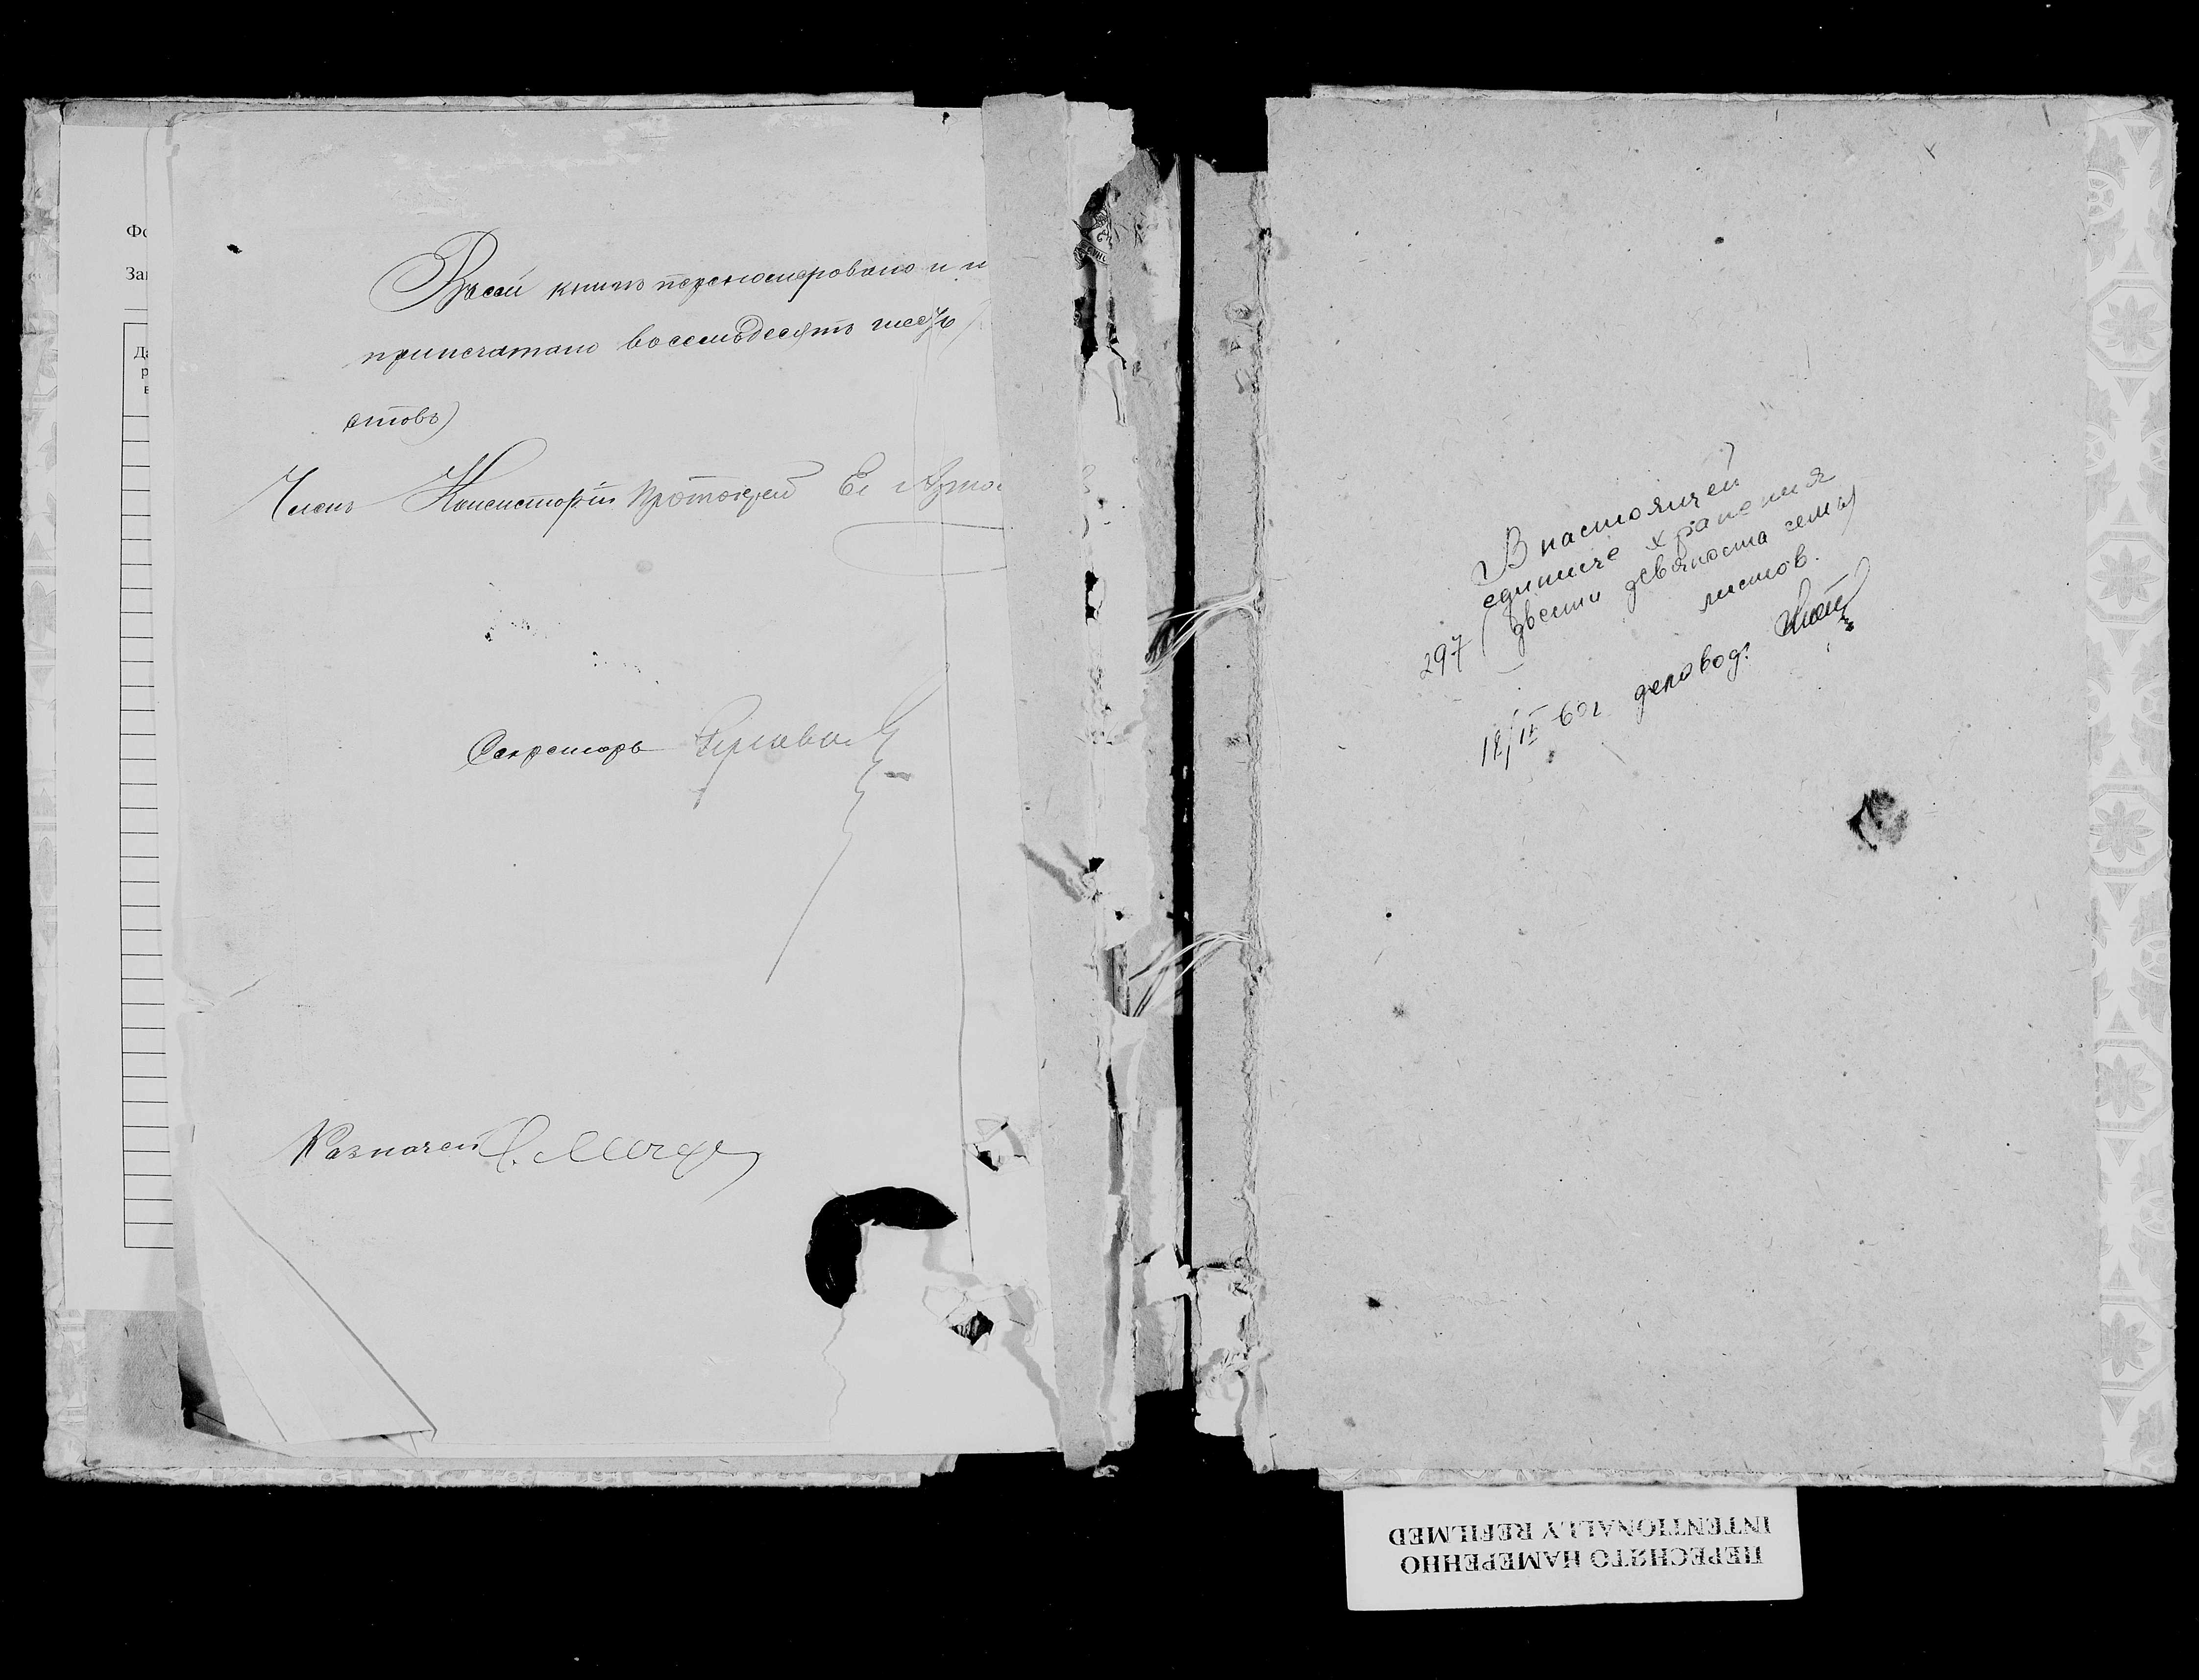 Фо
За
Да
р
в
Въ сей книгѣ перенумеровано и п
припечатано восемьдесятъ шесть
стовъ)
Членъ Консисторіи Протоіерей Ев
Секретарь
Казначей
В настоящей
единице хранения
297 (двести девяноста семь)
листов.
12/IV 60г деловод.
ПЕРЕСНЯТО НАМЕРЕННО
INTENTIONALLY REFILMED